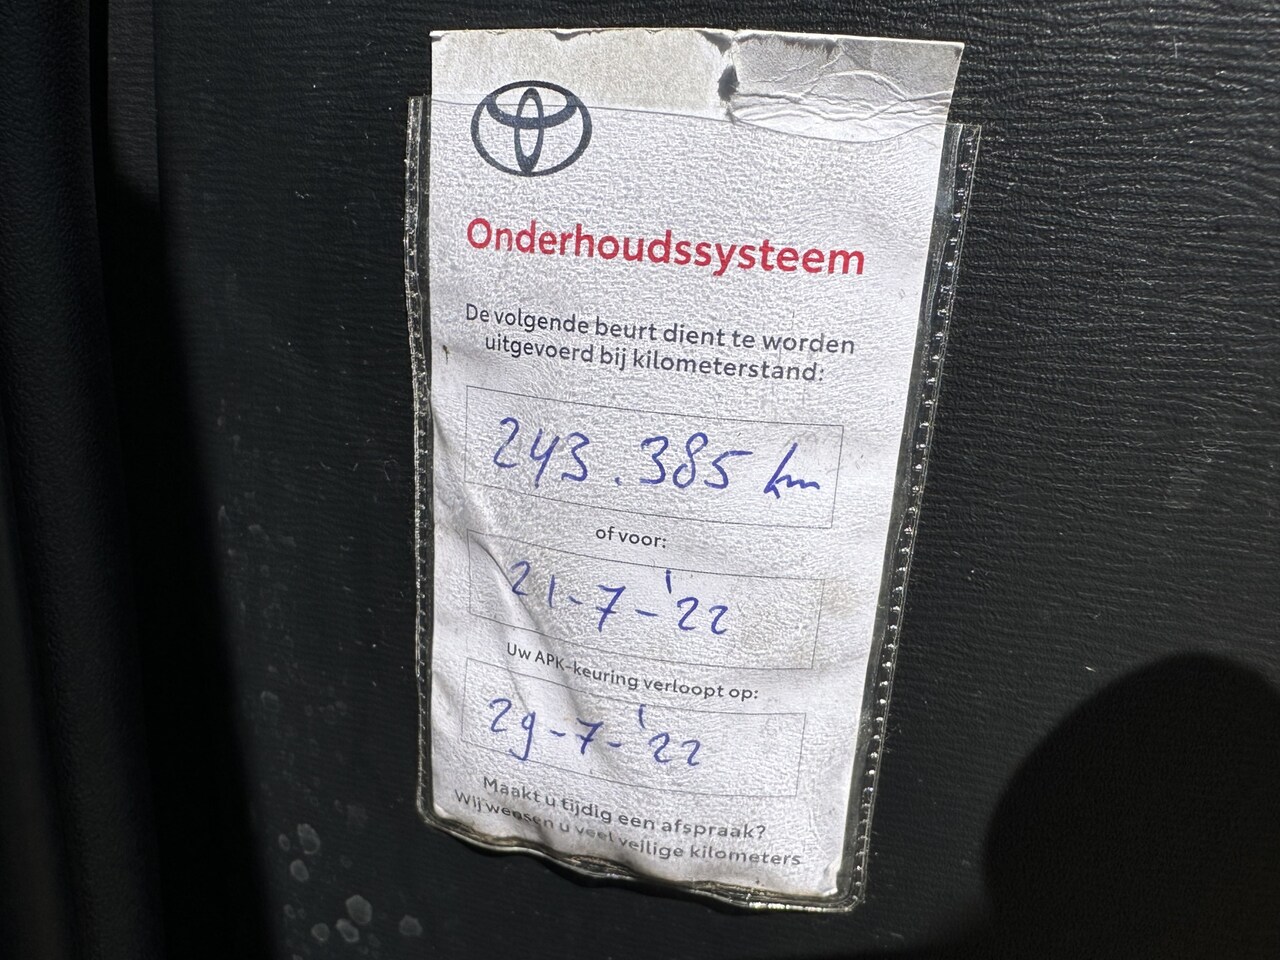 Onderhoudssysteem
De volgende beurt dient te worden
uitgevoerd bij kilometerstand:
243.385 km
of voor:
21-7-'22
Uw APK-keuring verloopt op:
29-7-'22
Maakt u tijdig een afspraak?
Wij wensen u veel veilige kilometers